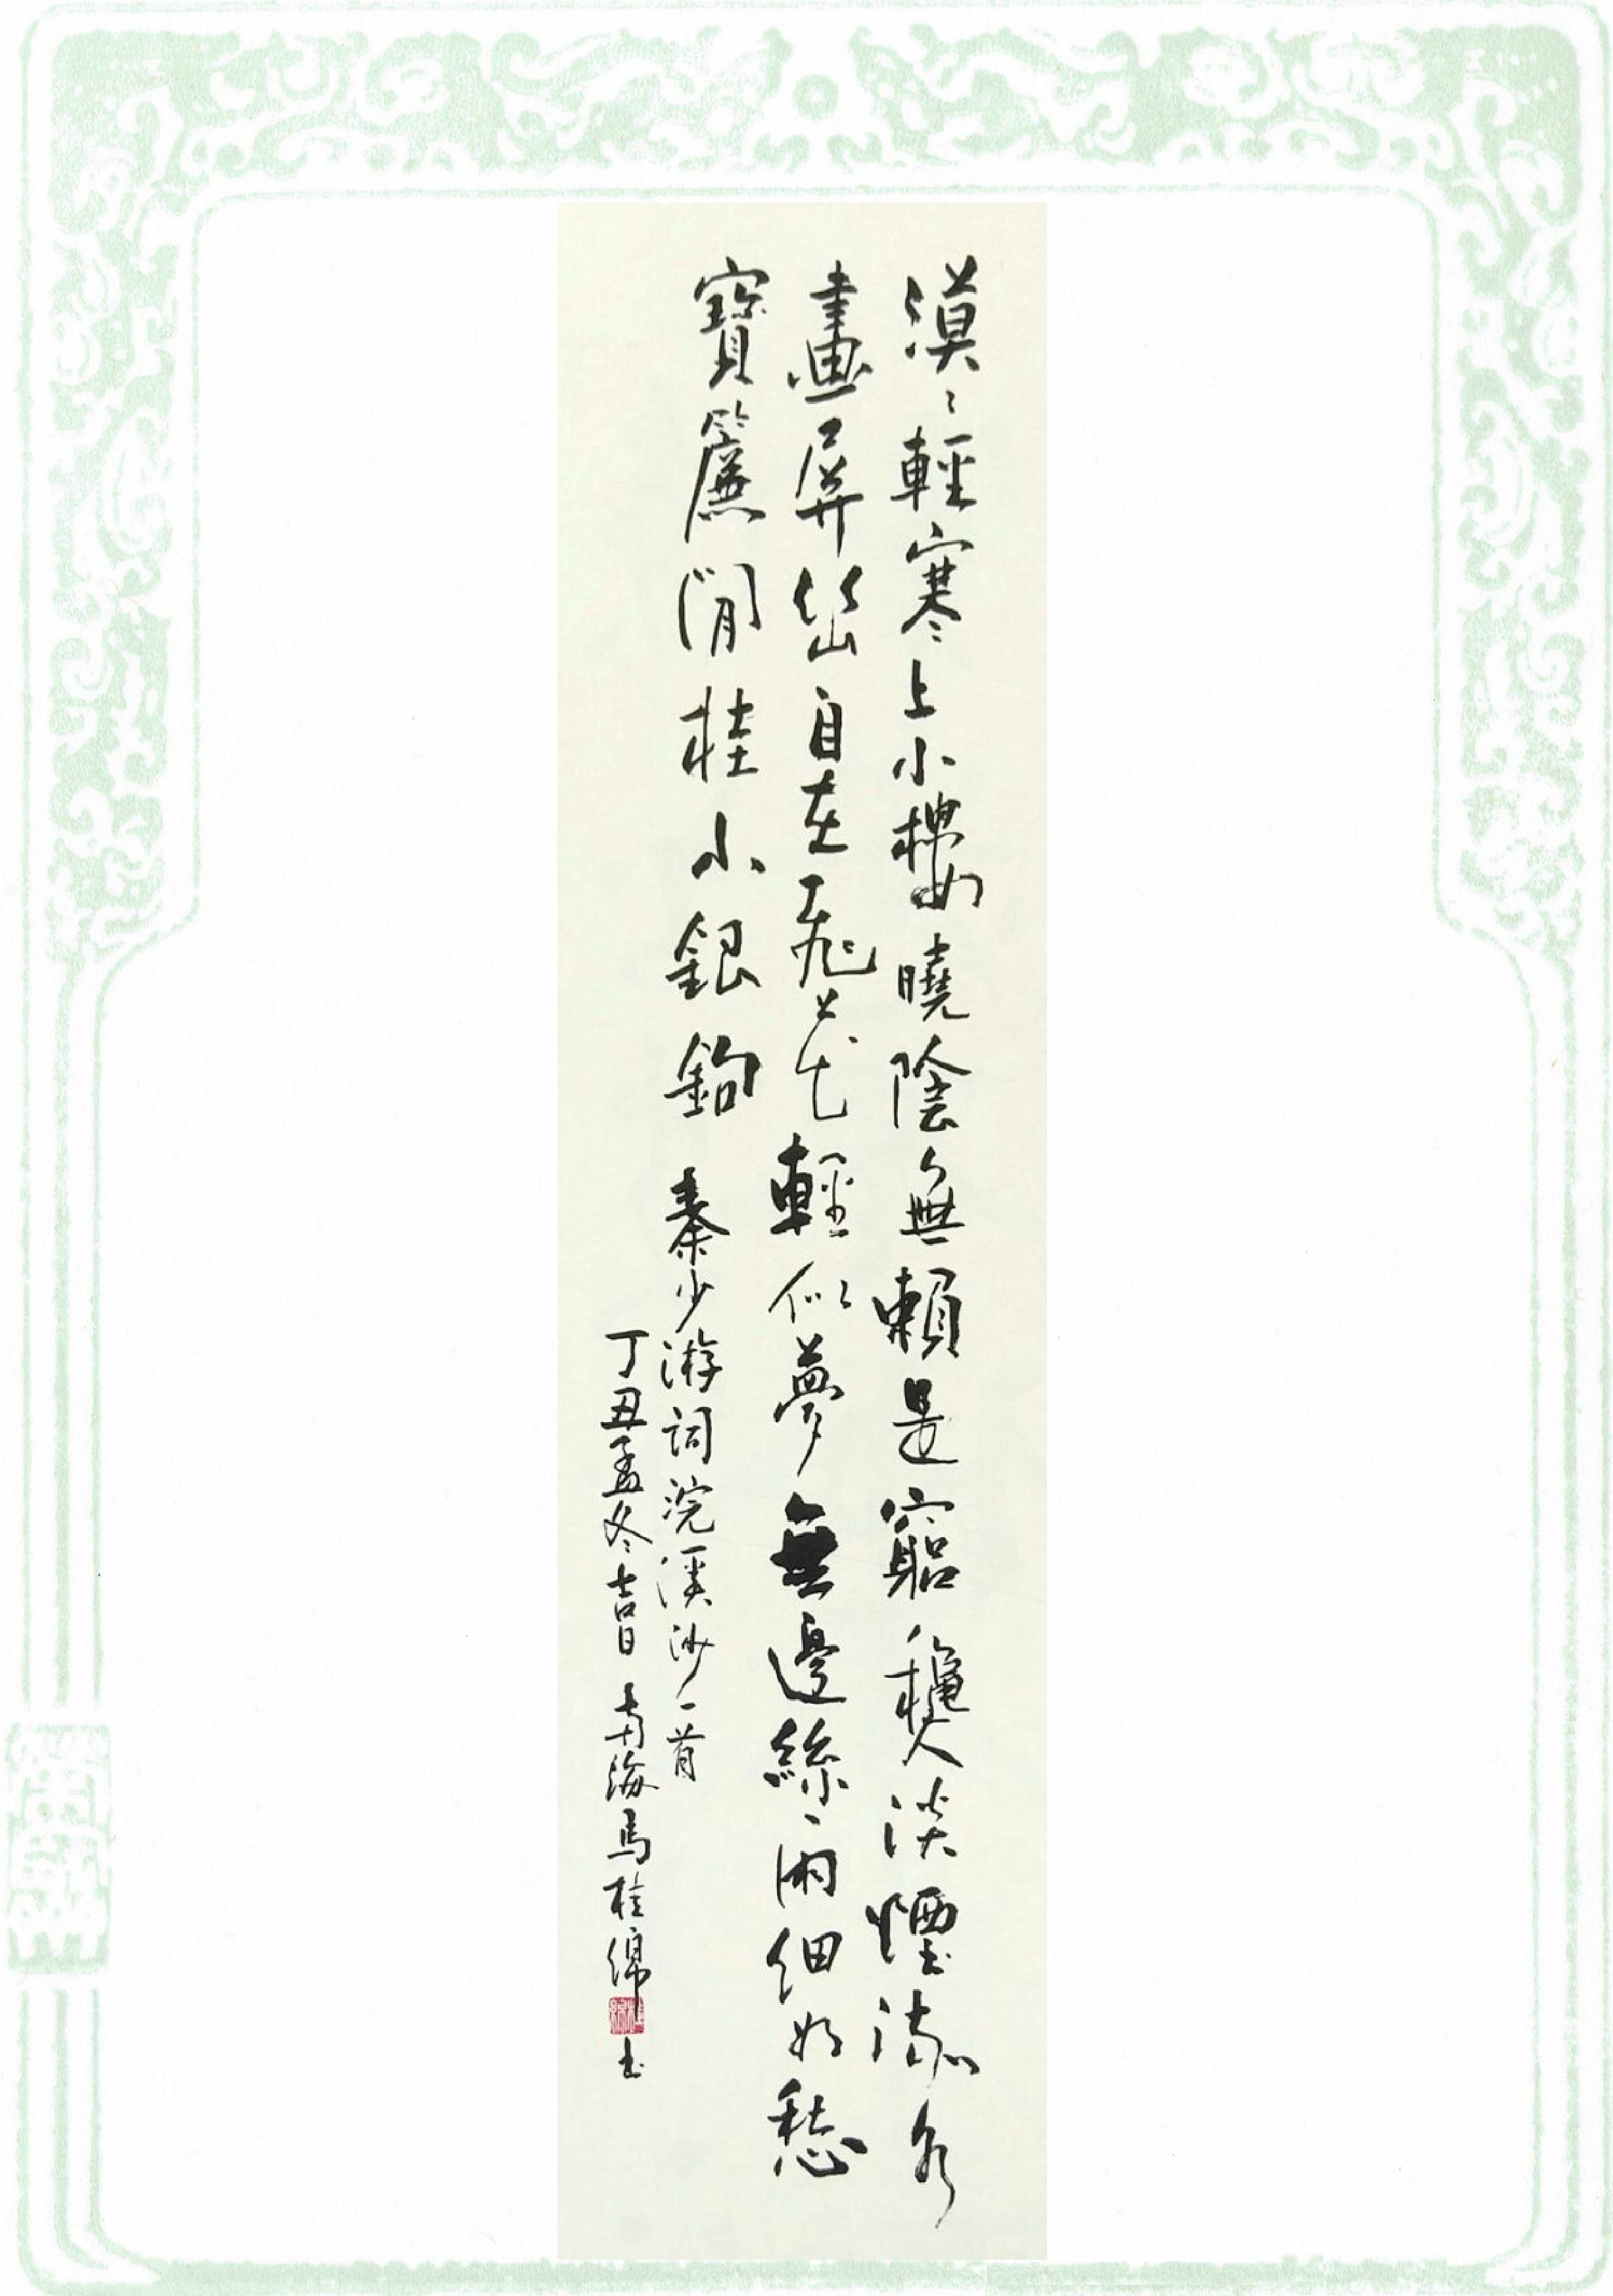 漠〻輕寒上小樓曉陰無賴是窮龝淡煙流水
畫屏幽自在飛花輕似夢無邊絲雨細如愁
寶簾閒挂小銀鉤
秦少游詞浣溪沙一首
丁丑孟冬吉日南海馬桂綿書